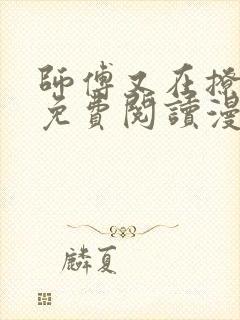 師傅又在撩
免費閱讀漫
麟夏